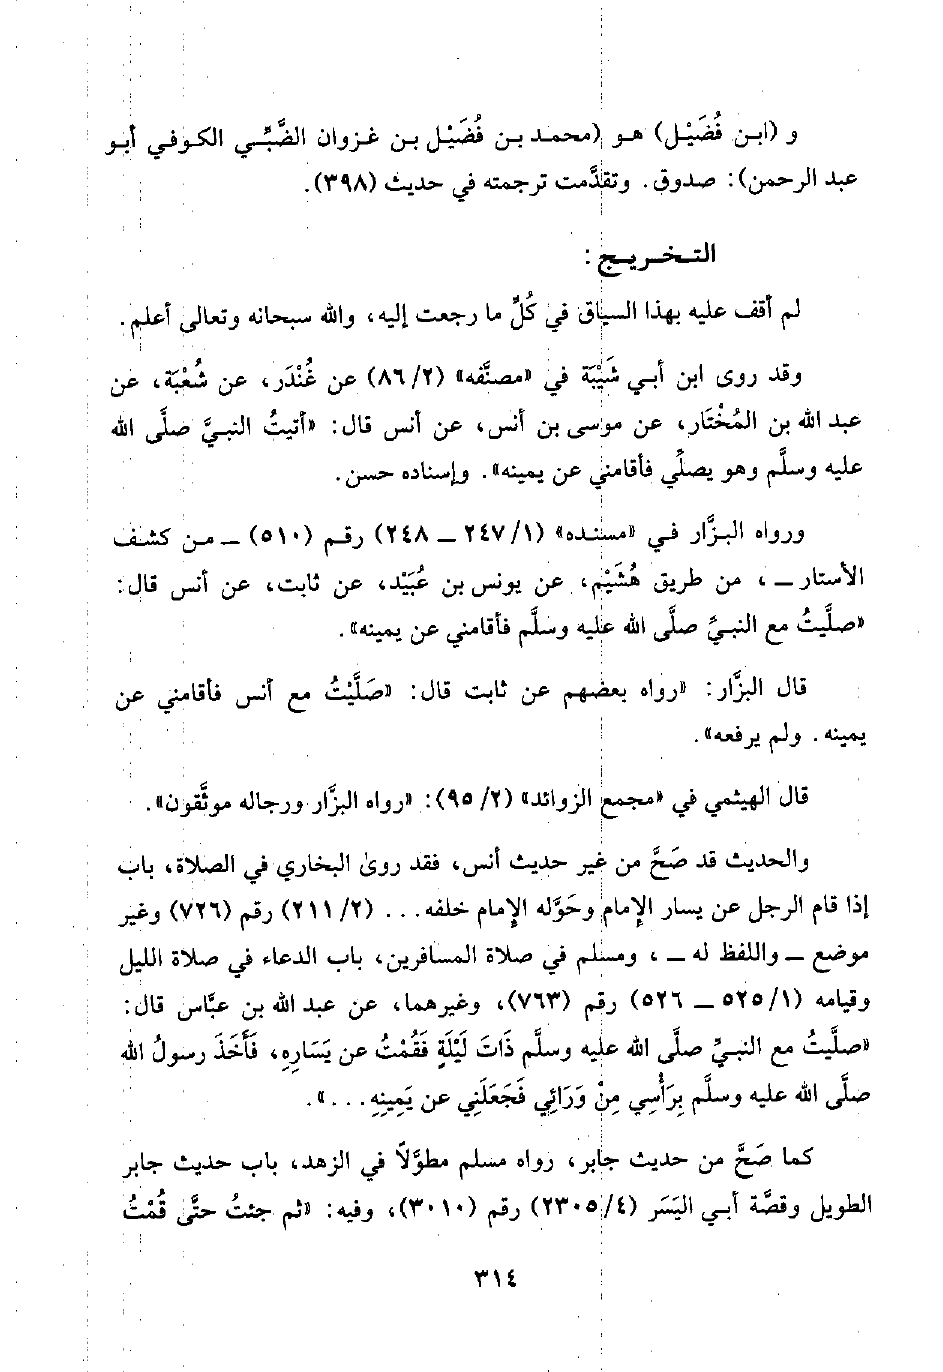 و (ابن فُضَيْل) هو (محمد بن فُضَيْل بن غزوان الضَّبِّي الكوفي أبو
عبد الرحمن): صدوق. وتقدَّمت ترجمته في حديث (٣٩٨).
التخريج:
لم أقف عليه بهذا السياق في كُلِّ ما رجعت إليه، والله سبحانه وتعالى أعلم.
وقد روى ابن أبي شَيْبَة في «مصنَّفه» (٢/ ٨٦) عن غُنْدَر، عن شُعْبَة، عن
عبد الله بن المُخْتَار، عن موسى بن أنس، عن أنس قال: «أتيتُ النبيَّ صلَّى الله
عليه وسلَّم وهو يصلِّي فأقامني عن يمينه». وإسناده حسن.
ورواه البزَّار في «مسنده» (١/ ٢٤٧ ــ ٢٤٨) رقم (٥١٠) ــ من كشف
الأستار ــ ، من طريق هُشَيْم، عن يونس بن عُبَيْد، عن ثابت، عن أنس قال:
«صلَّيتُ مع النبيِّ صلَّى الله عليه وسلَّم فأقامني عن يمينه».
قال البزَّار: «رواه بعضهم عن ثابت قال: «صَلَّيْتُ مع أنس فأقامني عن
يمينه. ولم يرفعه».
قال الهيثمي في «مجمع الزوائد» (٢/ ٩٥): «رواه البزَّار ورجاله موثَّقون».
والحديث قد صَحَّ من غير حديث أنس، فقد روىٰ البخاري في الصلاة، باب
إذا قام الرجل عن يسار الإِمام وحَوَّله الإِمام خلفه... (٢/ ٢١١) رقم (٧٢٦) وغير
موضع ــ واللفظ له ــ ، ومسلم في صلاة المسافرين، باب الدعاء في صلاة الليل
وقيامه (١/ ٥٢٥ ــ ٥٢٦) رقم (٧٦٣)، وغيرهما، عن عبد الله بن عبَّاس قال:
«صلَّيتُ مع النبيِّ صلَّى الله عليه وسلَّم ذَاتَ لَيْلَةٍ فَقُمْتُ عن يَسَارِهِ، فَأَخَذَ رسولُ الله
صلَّى الله عليه وسلَّم بِرَأْسِي مِنْ وَرَائِي فَجَعَلَنِي عن يَمِينِهِ...».
كما صَحَّ من حديث جابر، رواه مسلم مطوَّلاً في الزهد، باب حديث جابر
الطويل وقصَّة أبي اليَسَر (٤/ ٢٣٠٥) رقم (٣٠١٠)، وفيه: «ثم جئتُ حتَّى قُمْتُ
٣١٤